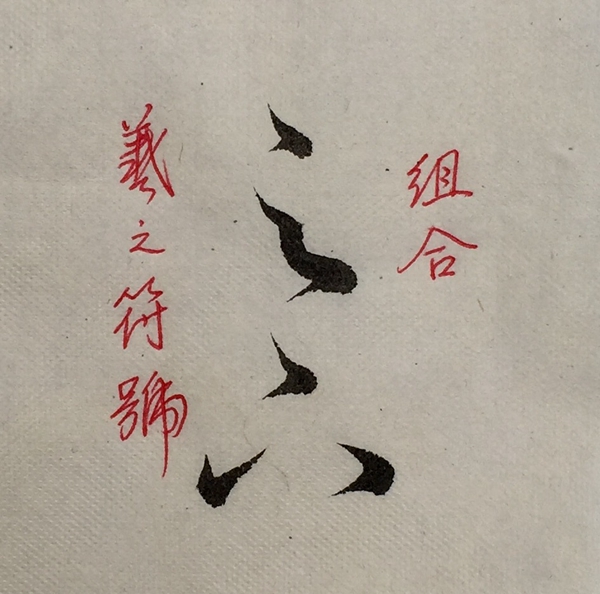 组合
羲之符號